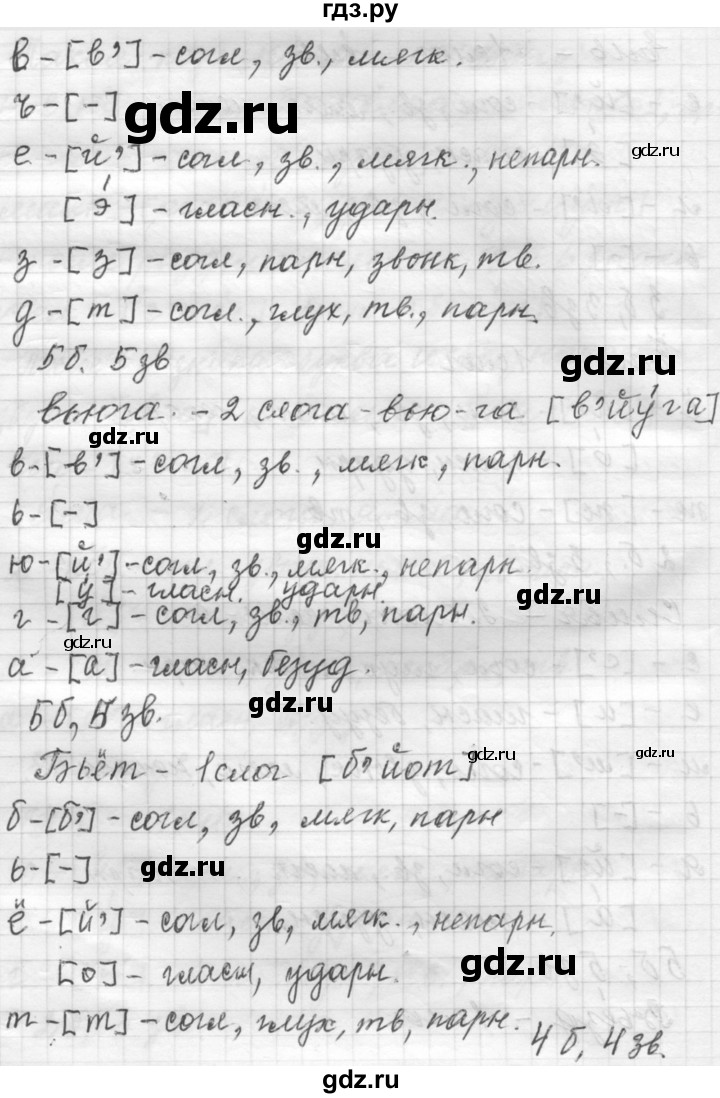 гдз.ру
в - [в'] - согл, зв., мягк.
ъ - [-]
gdz.ru
gdz.ru
е - [й'] - согл, зв., мягк., непарн.
[э́] - гласн., ударн.
з - [з] - согл, парн, звонк, тв.
д - [т] - согл., глух, тв., парн.
5 б. 5 зв
gdz.ru
вьюга. - 2 слога - вью-га [в'йу́га]
gdz.ru
в - [в'] - согл, зв., мягк, парн.
ь - [-]
gdz.ru
ю - [й'] - согл, зв., мягк., непарн.
[у́] - гласн. ударн.
gdz.ru
г - [г] - согл, зв., тв, парн.
gdz.ru
а - [а] - гласн, безуд.
gdz.ru
5 б, 5 зв.
Бьёт - 1 слог [б'йот]
gdz.ru
б - [б'] - согл, зв, мягк, парн
ь - [-]
gdz.ru
ё - [й'] - согл, зв, мягк., непарн.
gdz.ru
[о] - гласн, ударн.
gdz.ru
т - [т] - согл, глух, тв, парн.
4 б, 4 зв.
gdz.ru
gdz.ru